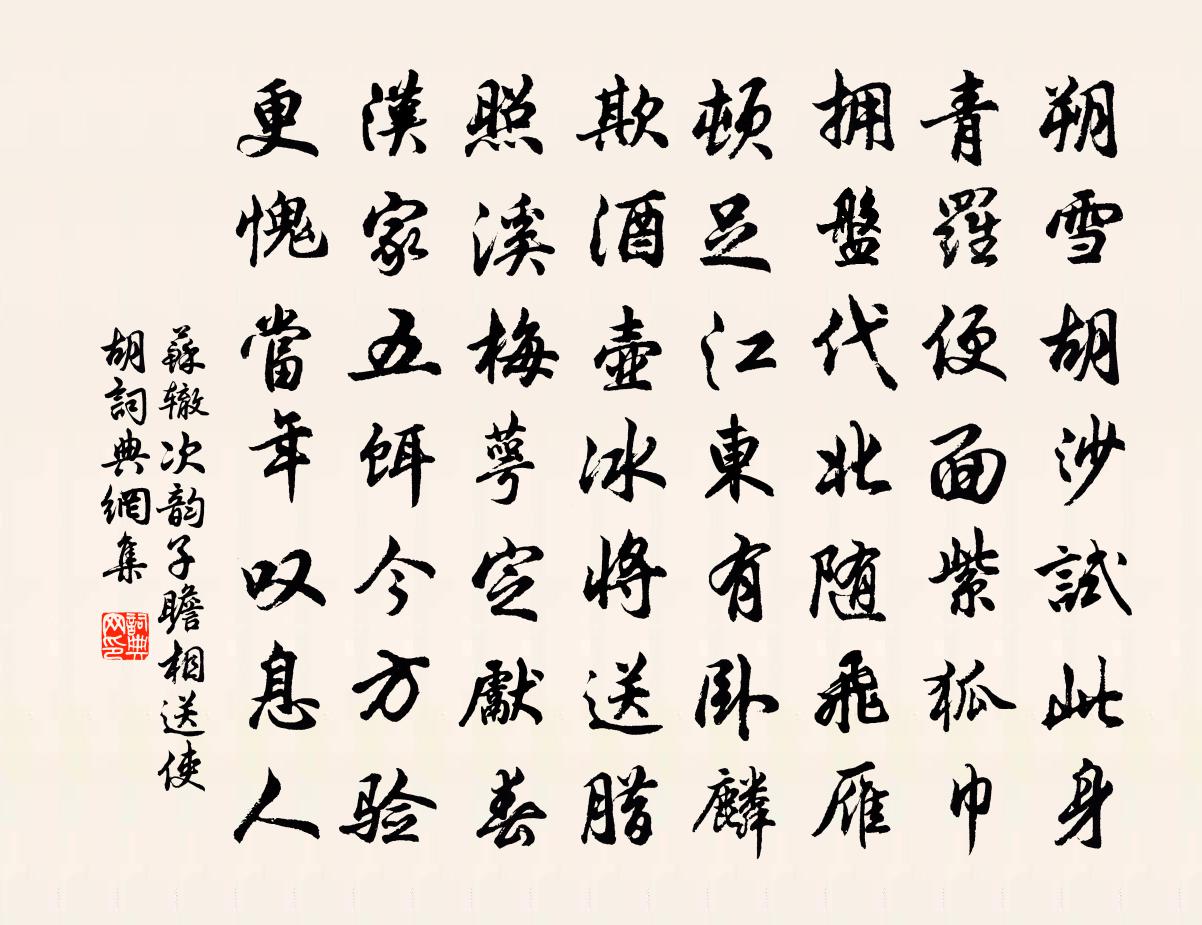 朔雪胡沙試此身
青羅便面紫狐巾
拥盤代北随飛雁
頓足江東有卧麟
欺酒壺冰將送腊
照溪梅萼定獻春
漢家五餌今方验
更愧當年叹息人
蘇辙次韵子瞻相送使
胡詞典網集
詞典网印